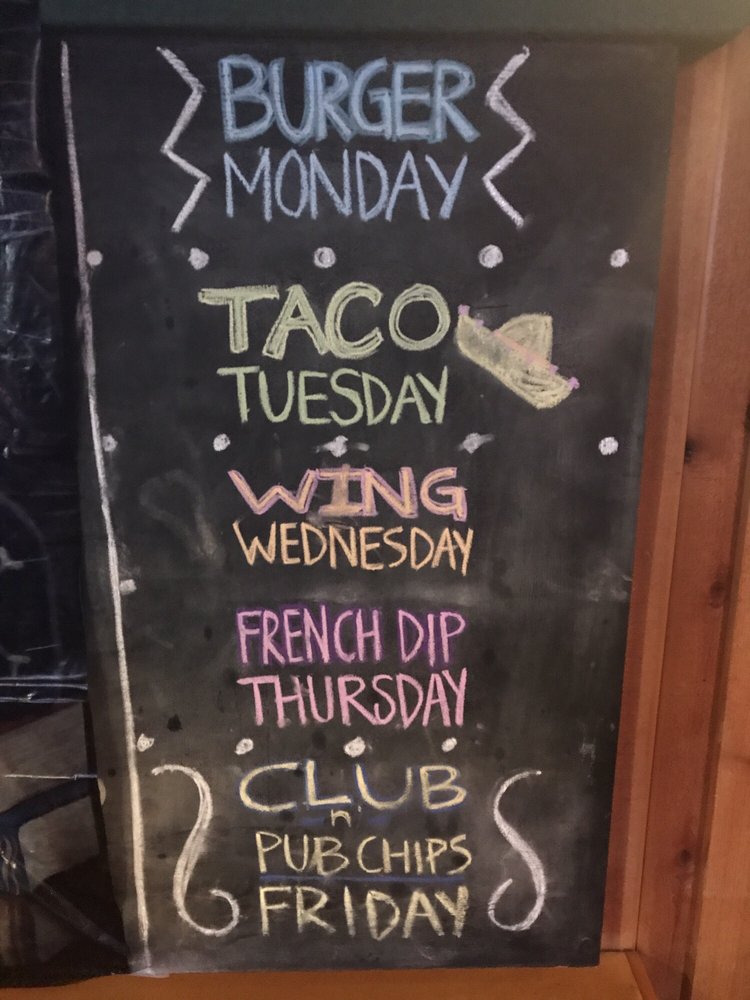 BURGER
MONDAY
TACO
TUESDAY
WING
WEDNESDAY
FRENCH DIP
THURSDAY
CLUB
n'
PUB CHIPS
FRIDAY